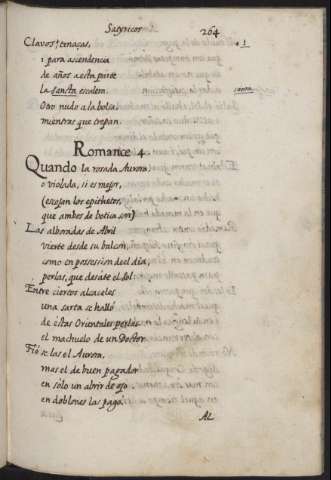 Satyricos 264
Clavos, tenaças,
i para ascendencia
de años a esta parte
la sancta escalera.
Otro nudo a la bolsa
mientras que trepan.
Romance 4
Quando la rosada Aurora
o violada, si es mejor,
(escojan los epithetos,
que ambos de botica son)
Las alboradas de Abril
vierte desde su balcon,
como en possession del dia,
perlas, que desate el sol:
Entre ciertos alcaceles
una sarta se halló
de estas Orientales perlas
el machuelo de un Doctor
Fió se las el Aurora,
mas el de buen pagador
en solo un abrir de ojo
en doblones las pagó.
AL